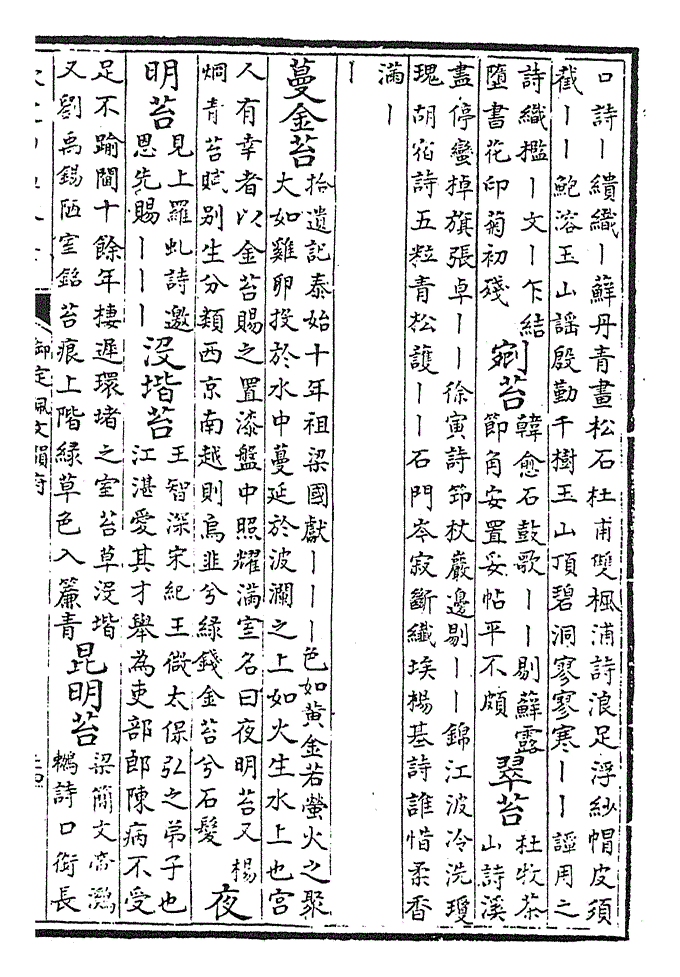 口詩丨繢織丨蘚丹青畫松石杜甫雙楓浦詩浪足浮紗帽皮須
截丨丨鮑溶玉山謡殷勤千樹玉山頂碧洞寥寥寒丨丨謹用之
詩織檻丨文丨乍結
墮書花印菊初殘
剜苔
韓愈石鼓歌丨丨剔蘚露
節角安置妥帖平不頗
翠苔
杜牧茶
山詩溪
盡停蠻棹旗張卓丨丨徐寅詩筇杖巖邊剔丨丨錦江波冷洗瓊
瑰胡宿詩五粒青松護丨丨石門岑寂斷纖埃楊基詩誰惜柔香
滿丨
丨
蔓金苔
拾遺記泰始十年祖梁國獻丨丨丨色如黄金若螢火之聚
大如雞卵投於水中蔓延於波瀾之上如火生水上也宫
人有幸者以金苔賜之置漆盤中照耀滿室名曰夜明苔又楊
炯青苔賦别生分類西京南越則烏韭兮綠錢金苔兮石髮
夜
明苔
見上羅虬詩邀
恩先賜丨丨丨
没堦苔
王智深宋紀王微太保弘之弟子也
江湛愛其才舉為吏部郎陳病不受
足不踰閫十餘年棲遲環堵之室苔草没堦
又劉禹錫陋室銘苔痕上階緑草色入簾青
昆明苔
梁簡文帝鸂
鶒詩口銜長
御定佩文韻府